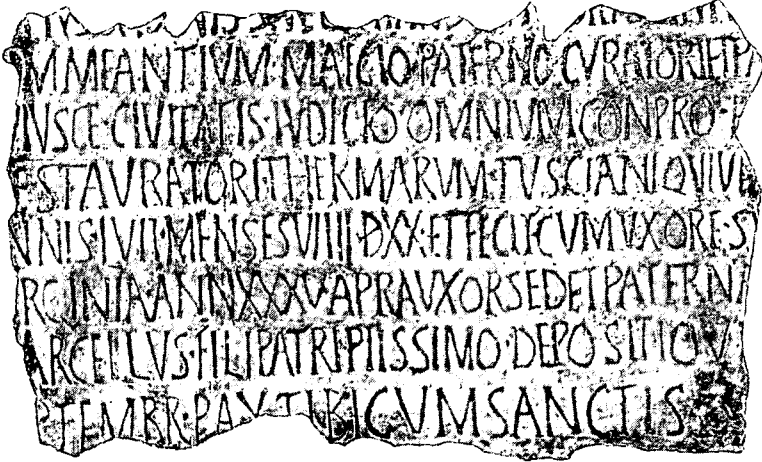 MMFANTIVM MAICIO PATERNO CVRATORI ET P
IVSCE CIVITATIS·IVDICIO OMNIVM CONPRO
ESTAVRATORI·THERMARVM·TVSCIANI QVI VI
NNIS·LVII·MENSES VIIII·DXX·ET FECIT CVM VXORE·S
RCINIA ANN XXXV APRA VXOR SED ET PATERN
ARCELLVS·FILI PATRI PIISSIMO·DEPOSITIO
PTEMBR· CVM SANCTIS